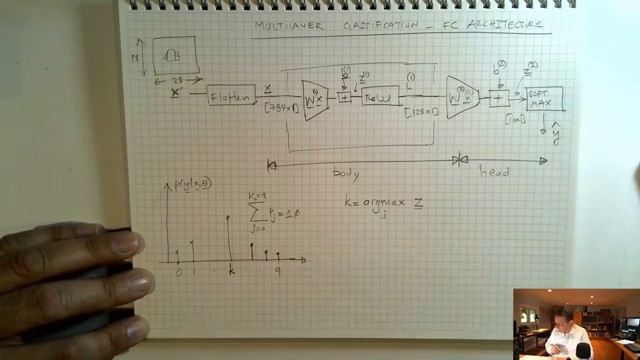 MULTILAYER CLASSIFICATION - FC ARCHITECTURE
28
28
X Flatten x [784x1] W(1)x + b(1) z(1) ReLU h(1) [128x1] W(2)h(1) + b(2) z(2) [10x1] SOFT MAX
ŷ
body head
p(y|x,θ)
K=9 Σ j=0 Pj = 1.0
k = argmax j z
0 1 k 9